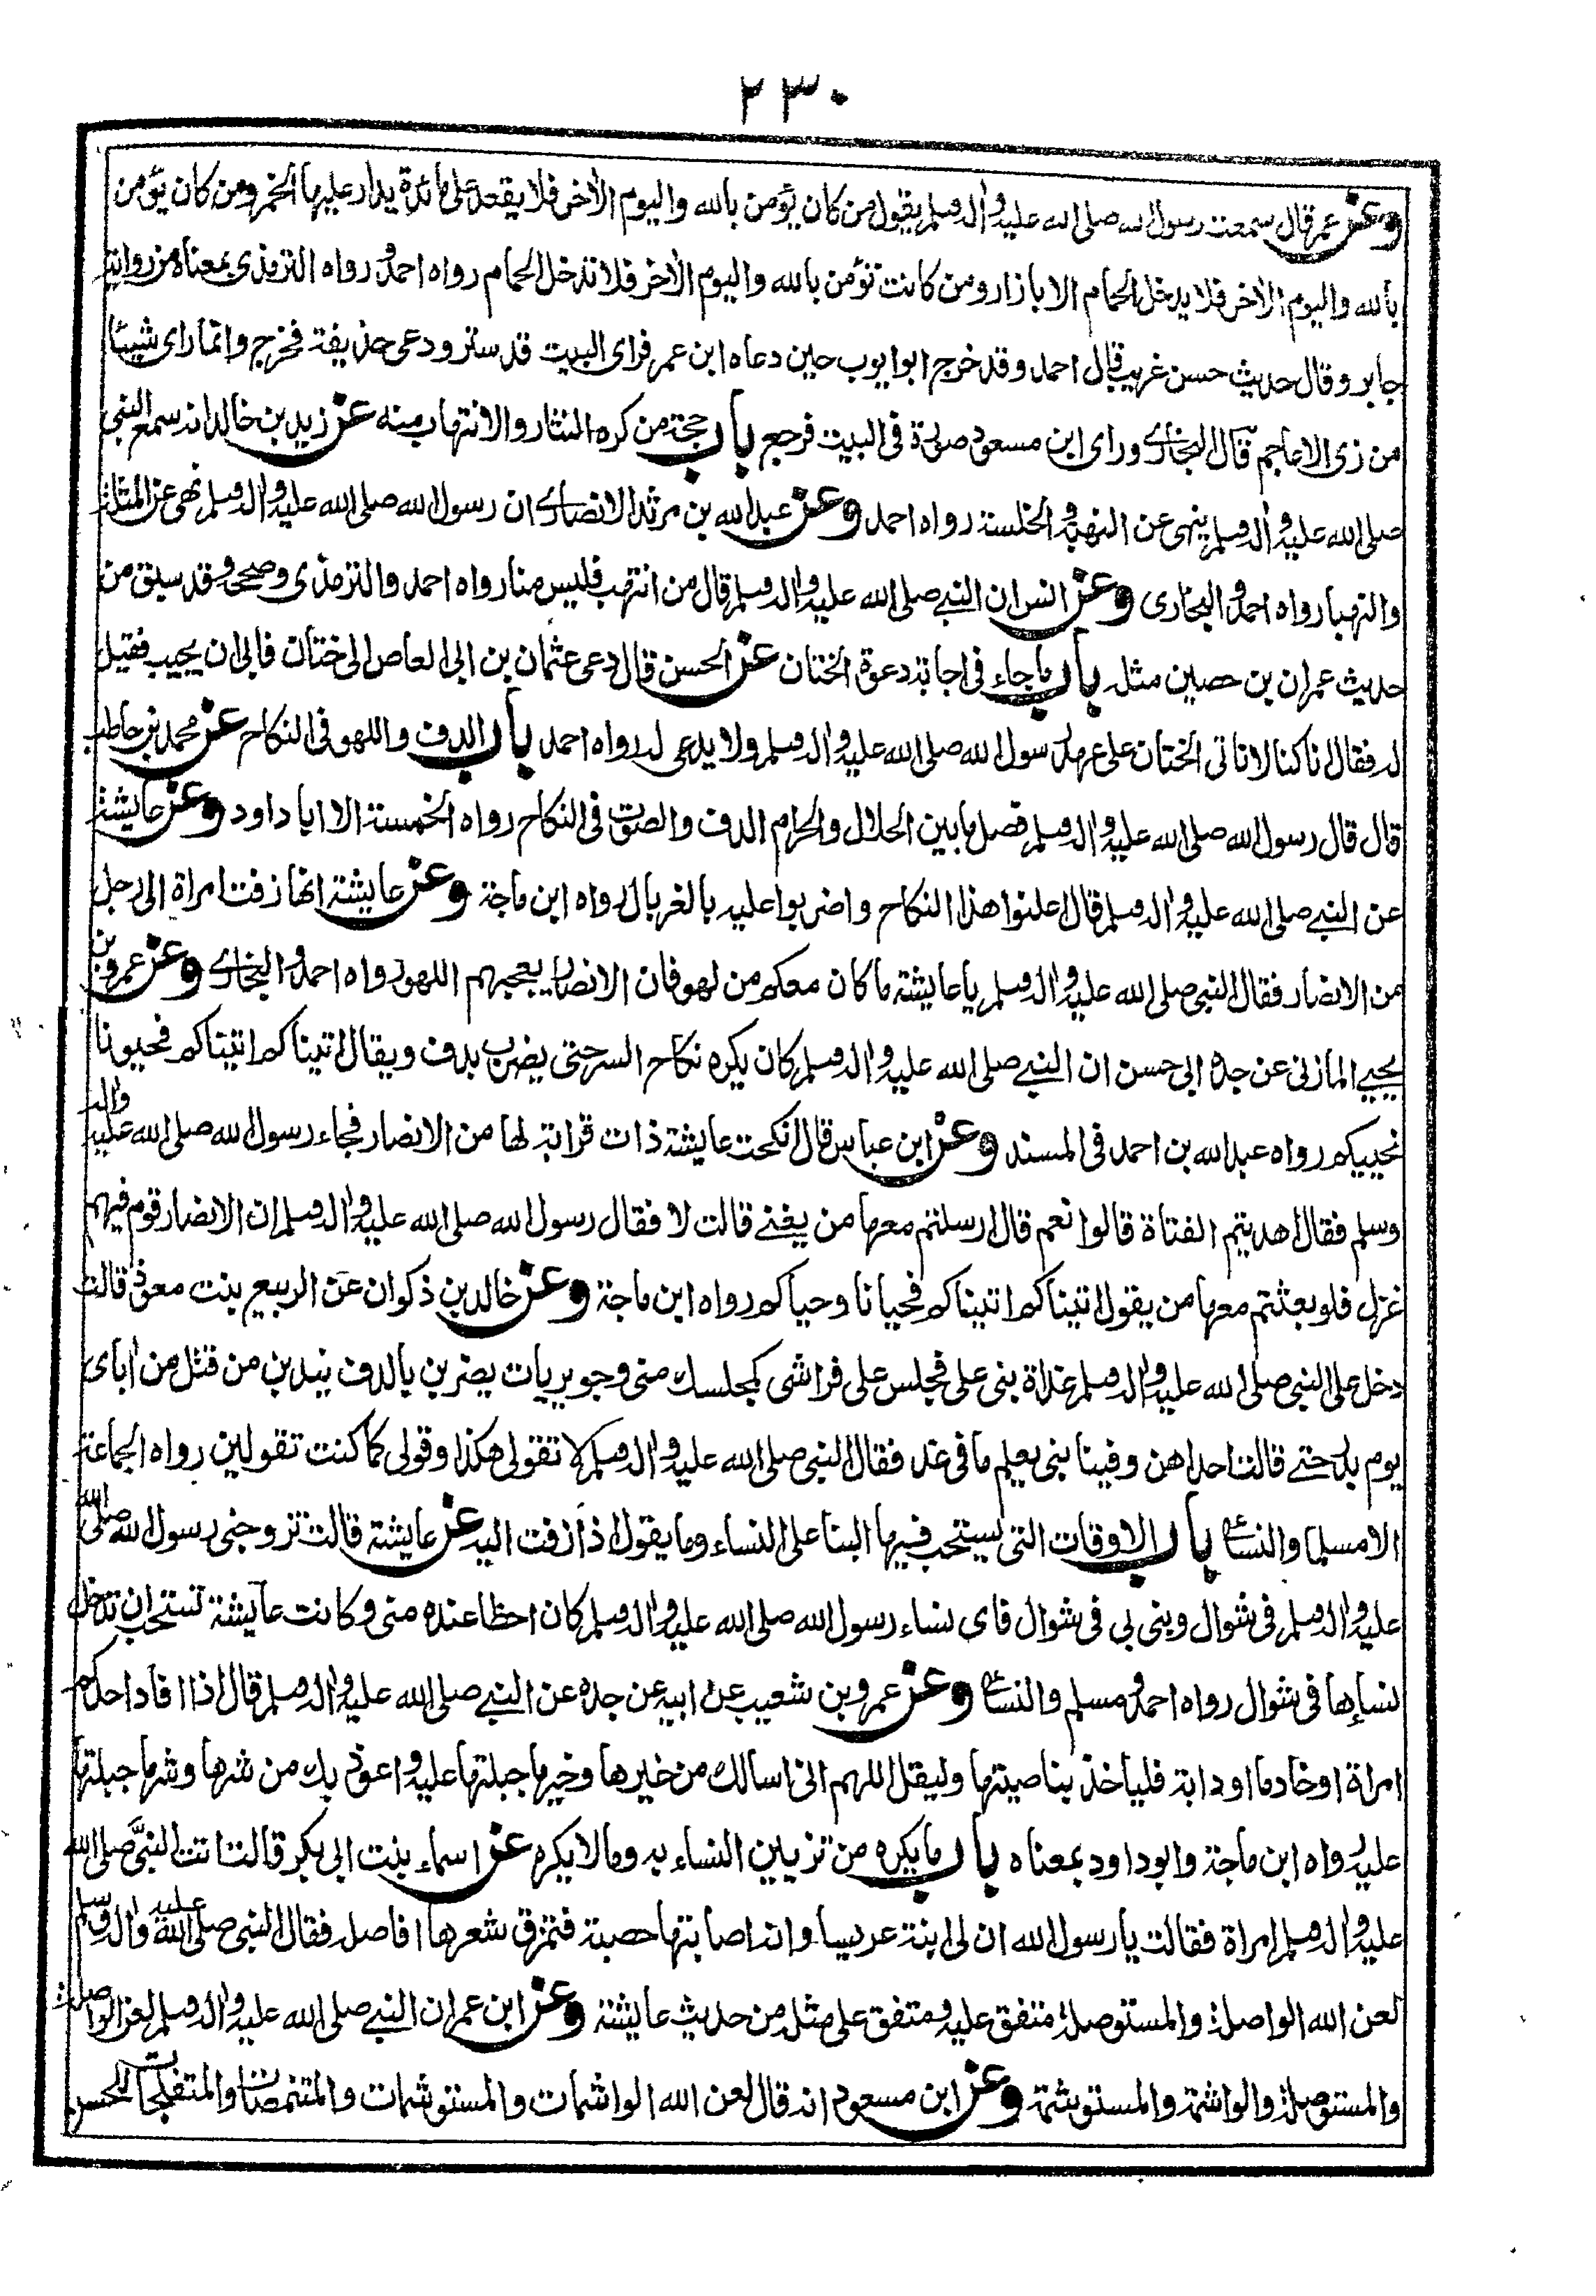 ٢٣٠
وعن عمر قال سمعت رسول الله صلى الله عليه واله وسلم يقول من كان يؤمن بالله واليوم الاخر فلا يقعد على مائدة يدار عليها الخمر ومن كان يؤمن
بالله واليوم الاخر فلا يدخل الحمام الا بازار ومن كانت تؤمن بالله واليوم الاخر فلا تدخل الحمام رواه احمد ورواه الترمذى بمعناه من رواية
جابر وقال حديث حسن غريب قال احمد وقد خرج ابو ايوب حين دعاه ابن عمر فراى البيت قد ستر ودعى حذيفة فخرج وانما راى شيئا
من زى الاعاجم قال البخارى وراى ابن مسعود صورة فى البيت فرجع باب حجة من كره النثار والانتهاب منه عن زيد بن خالد انه سمع النبى
صلى الله عليه واله وسلم ينهى عن النهبة والخلسة رواه احمد وعن عبد الله بن مرثد الانصارى ان رسول الله صلى الله عليه واله وسلم نهى عن المثلة
والنهبا رواه احمد والبخارى وعن انس ان النبى صلى الله عليه واله وسلم قال من انتهب فليس منا رواه احمد والترمذى وصححه وقد سبق من
حديث عمران بن حصين مثله باب ما جاء فى اجابة دعوة الختان عن الحسن قال دعى عثمان بن ابى العاص الى ختان فابى ان يجيب فقيل
له فقال انا كنا لا ناتى الختان على عهد رسول الله صلى الله عليه واله وسلم ولا يدعى له رواه احمد باب الدف واللهو فى النكاح عن محمد بن حاطب
قال قال رسول الله صلى الله عليه واله وسلم فصل ما بين الحلال والحرام الدف والصوت فى النكاح رواه الخمسة الا ابا داود وعن عايشة
عن النبى صلى الله عليه واله وسلم قال اعلنوا هذا النكاح واضربوا عليه بالغربال رواه ابن ماجة وعن عايشة انها زفت امراة الى رجل
من الانصار فقال النبى صلى الله عليه واله وسلم يا عايشة ما كان معكم من لهو فان الانصار يعجبهم اللهو رواه احمد والبخارى وعن عمرو بن
يحيى المازنى عن جده ابى حسن ان النبى صلى الله عليه واله وسلم كان يكره نكاح السر حتى يضرب بدف ويقال اتيناكم اتيناكم فحيونا
نحييكم رواه عبد الله بن احمد فى المسند وعن ابن عباس قال انكحت عايشة ذات قرابة لها من الانصار فجاء رسول الله صلى الله عليه واله
وسلم فقال اهديتم الفتاة قالوا نعم قال ارسلتم معها من يغنى قالت لا فقال رسول الله صلى الله عليه واله وسلم ان الانصار قوم فيهم
غزل فلو بعثتم معها من يقول اتيناكم اتيناكم فحيانا وحياكم رواه ابن ماجة وعن خالد بن ذكوان عن الربيع بنت معوذ قالت
دخل على النبى صلى الله عليه واله وسلم غداة بنى على فجلس على فراشى كمجلسك منى وجويريات يضربن بالدف يندبن من قتل من اباى
يوم بدر حتى قالت احداهن وفينا نبى يعلم ما فى غد فقال النبى صلى الله عليه واله وسلم لا تقولى هكذا وقولى كما كنت تقولين رواه الجماعة
الا مسلما والنسائى باب الاوقات التى يستحب فيها البنا على النساء وما يقول اذا زفت اليه عن عايشة قالت تزوجنى رسول الله صلى الله
عليه واله وسلم فى شوال وبنى بى فى شوال فاى نساء رسول الله صلى الله عليه واله وسلم كان احظا عنده منى وكانت عايشة تستحب ان تدخل
نساءها فى شوال رواه احمد ومسلم والنسائى وعن عمرو بن شعيب عن ابيه عن جده عن النبى صلى الله عليه واله وسلم قال اذا افاد احدكم
امراة او خادما او دابة فلياخذ بناصيتها وليقل اللهم انى اسالك من خيرها وخير ما جبلتها عليه واعوذ بك من شرها وشر ما جبلتها
عليه رواه ابن ماجة وابو داود بمعناه باب ما يكره من تزيين النساء به وما لا يكره عن اسماء بنت ابى بكر قالت اتت النبى صلى الله
عليه واله وسلم امراة فقالت يا رسول الله ان لى ابنة عريسا وانه اصابتها حصبة فتمزق شعرها افاصله فقال النبى صلى الله عليه واله وسلم
لعن الله الواصلة والمستوصلة متفق عليه ومتفق على مثله من حديث عايشة وعن ابن عمر ان النبى صلى الله عليه واله وسلم لعن الواصلة
والمستوصلة والواشمة والمستوشمة وعن ابن مسعود انه قال لعن الله الواشمات والمستوشمات والمتنمصات والمتفلجات للحسن